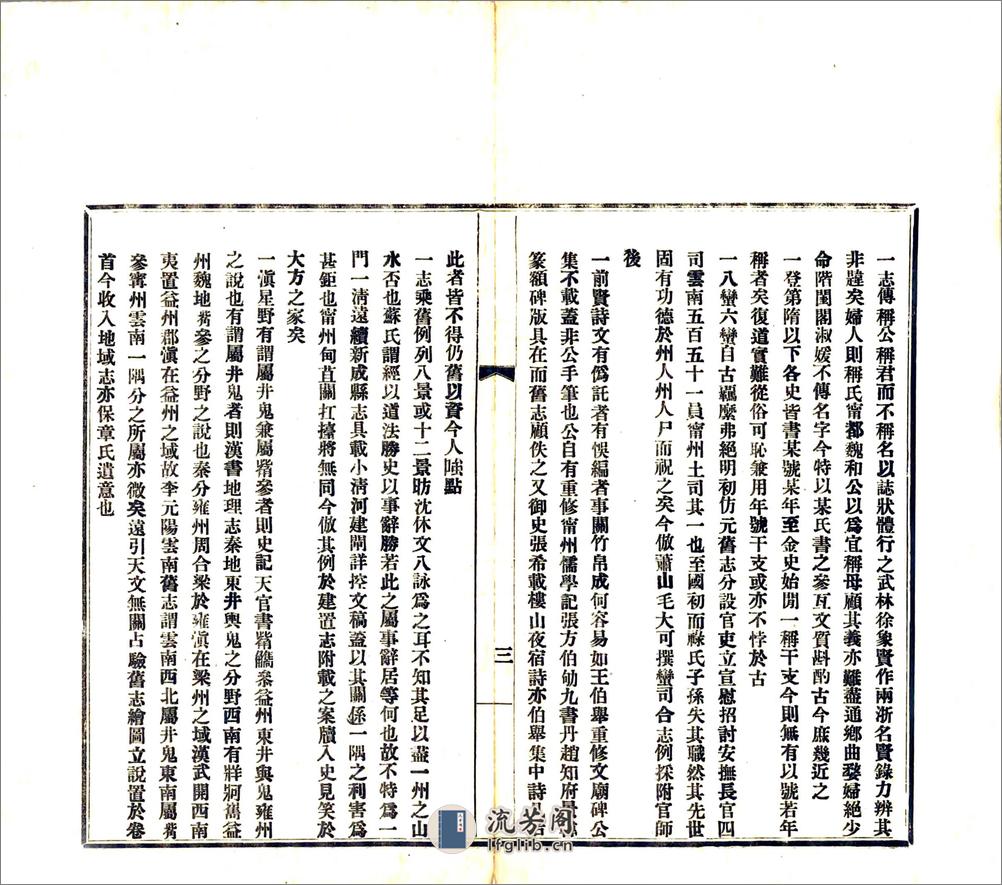 一志傳稱公稱君而不稱名以誌狀體行之武林徐象賢作兩浙名賢錄力辨其
非韙矣婦人則稱氏甯都魏和公以爲宜稱母顧其義亦難盡通鄉曲嫠婦絕少
命階閨閣淑媛不傳名字今特以某氏書之參互文質斟酌古今庶幾近之
一登第隋以下各史皆書某號某年至金史始閒一稱干支今則無有以號若年
稱者矣復道實難從俗可恥兼用年號干支或亦不悖於古
一八蠻六蠻自古羈縻弗絕明初仿元舊志分設官吏立宣慰招討安撫長官四
司雲南五百五十一員甯州土司其一也至國初而祿氏子孫失其職然其先世
固有功德於州人州人尸而祝之矣今倣蕭山毛大可撰蠻司合志例採附官師
後
一前賢詩文有僞託者有悞編者事關竹帛成何容易如王伯舉重修文廟碑公
集不載蓋非公手筆也公自有重修甯州儒學記張方伯劬九書丹趙知府
篆額碑版具在而舊志顧佚之又御史張希載樓山夜宿詩亦伯舉集中詩
三
此者皆不得仍舊以資今人嗤點
一志乘舊例列八景或十二景昉沈休文八詠爲之耳不知其足以盡一州之山
水否也蘇氏謂經以道法勝史以事辭勝若此之屬事辭居等何也故不特爲一
門一淸遠續新成縣志具載小淸河建閘詳控文稿蓋以其關係一隅之利害爲
甚鉅也甯州甸苴關扛擡將無同今倣其例於建置志附載之案牘入史見笑於
大方之家矣
一滇星野有謂屬井鬼兼屬觜參者則史記天官書觜觿參益州東井輿鬼雍州
之說也有謂屬井鬼者則漢書地理志秦地東井輿鬼之分野西南有牂牁嶲益
州魏地觜參之分野之說也秦分雍州周合梁於雍滇在梁州之域漢武開西南
夷置益州郡滇在益州之域故李元陽雲南舊志謂雲南西北屬井鬼東南屬觜
參甯州雲南一隅分之所屬亦微矣遠引天文無關占驗舊志繪圖立說置於卷
首今收入地域志亦保章氏遺意也
流芳阁
lfglib.cn